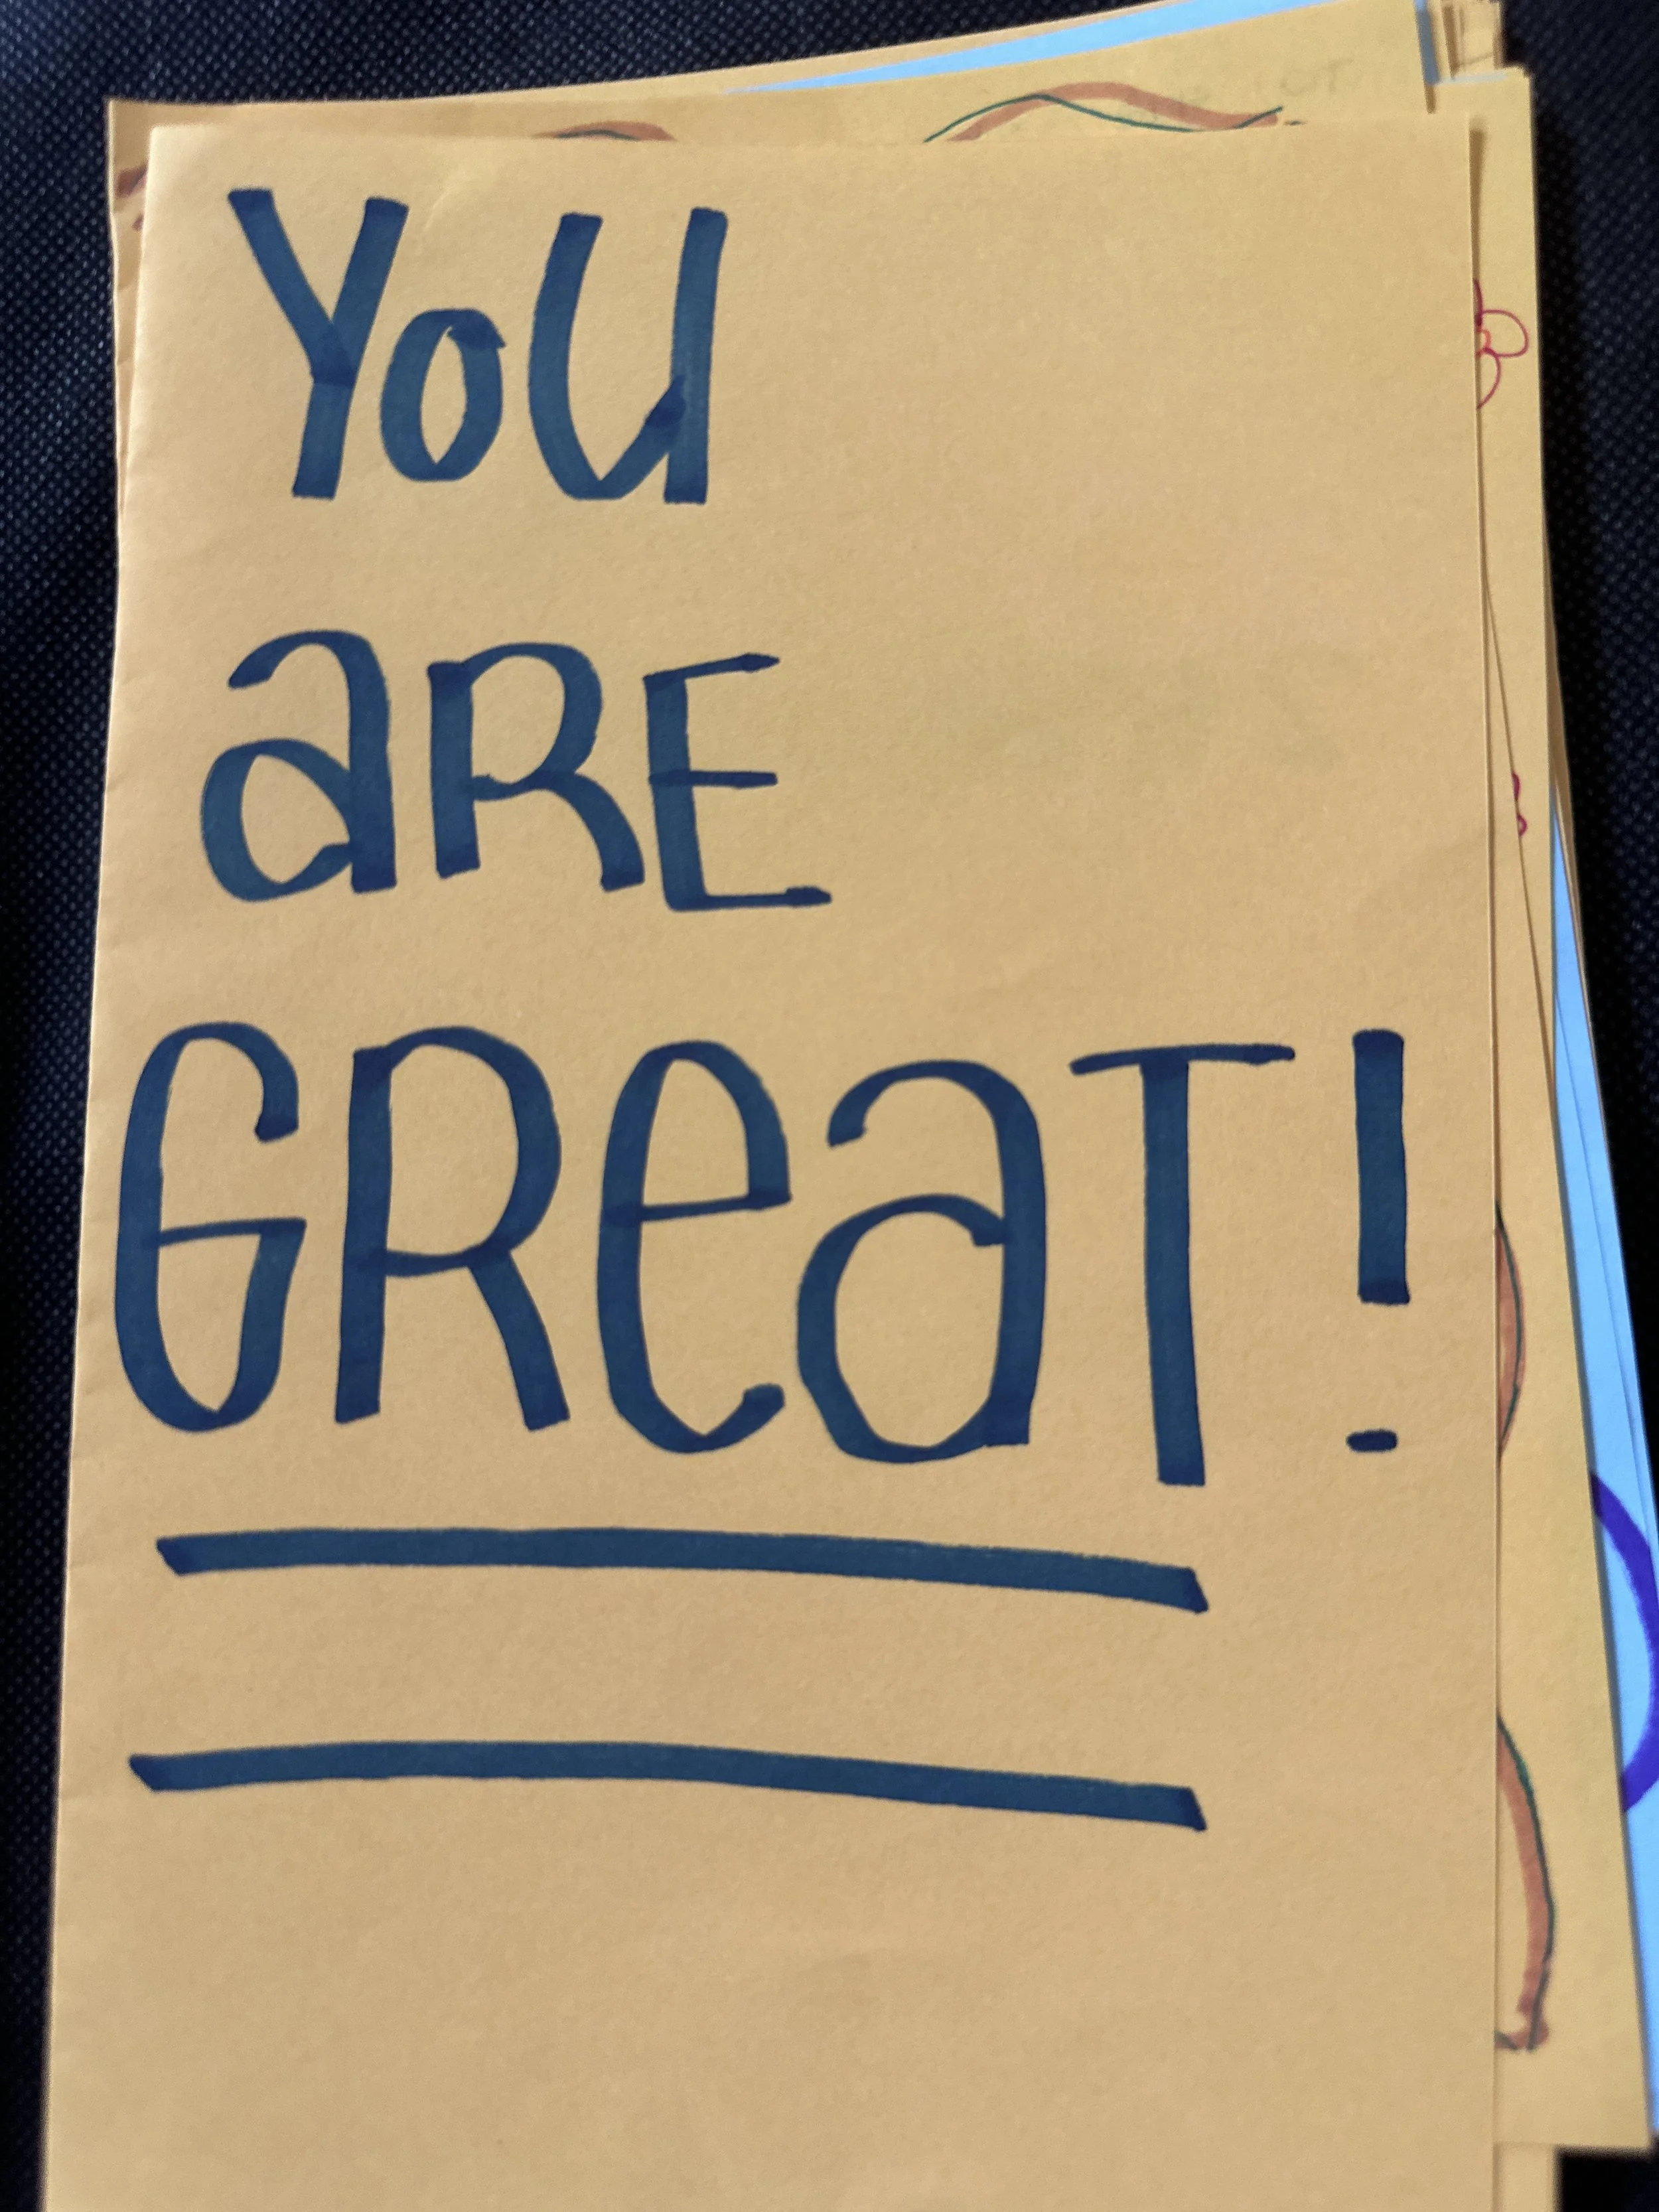 YoU
aRE
GReaT!